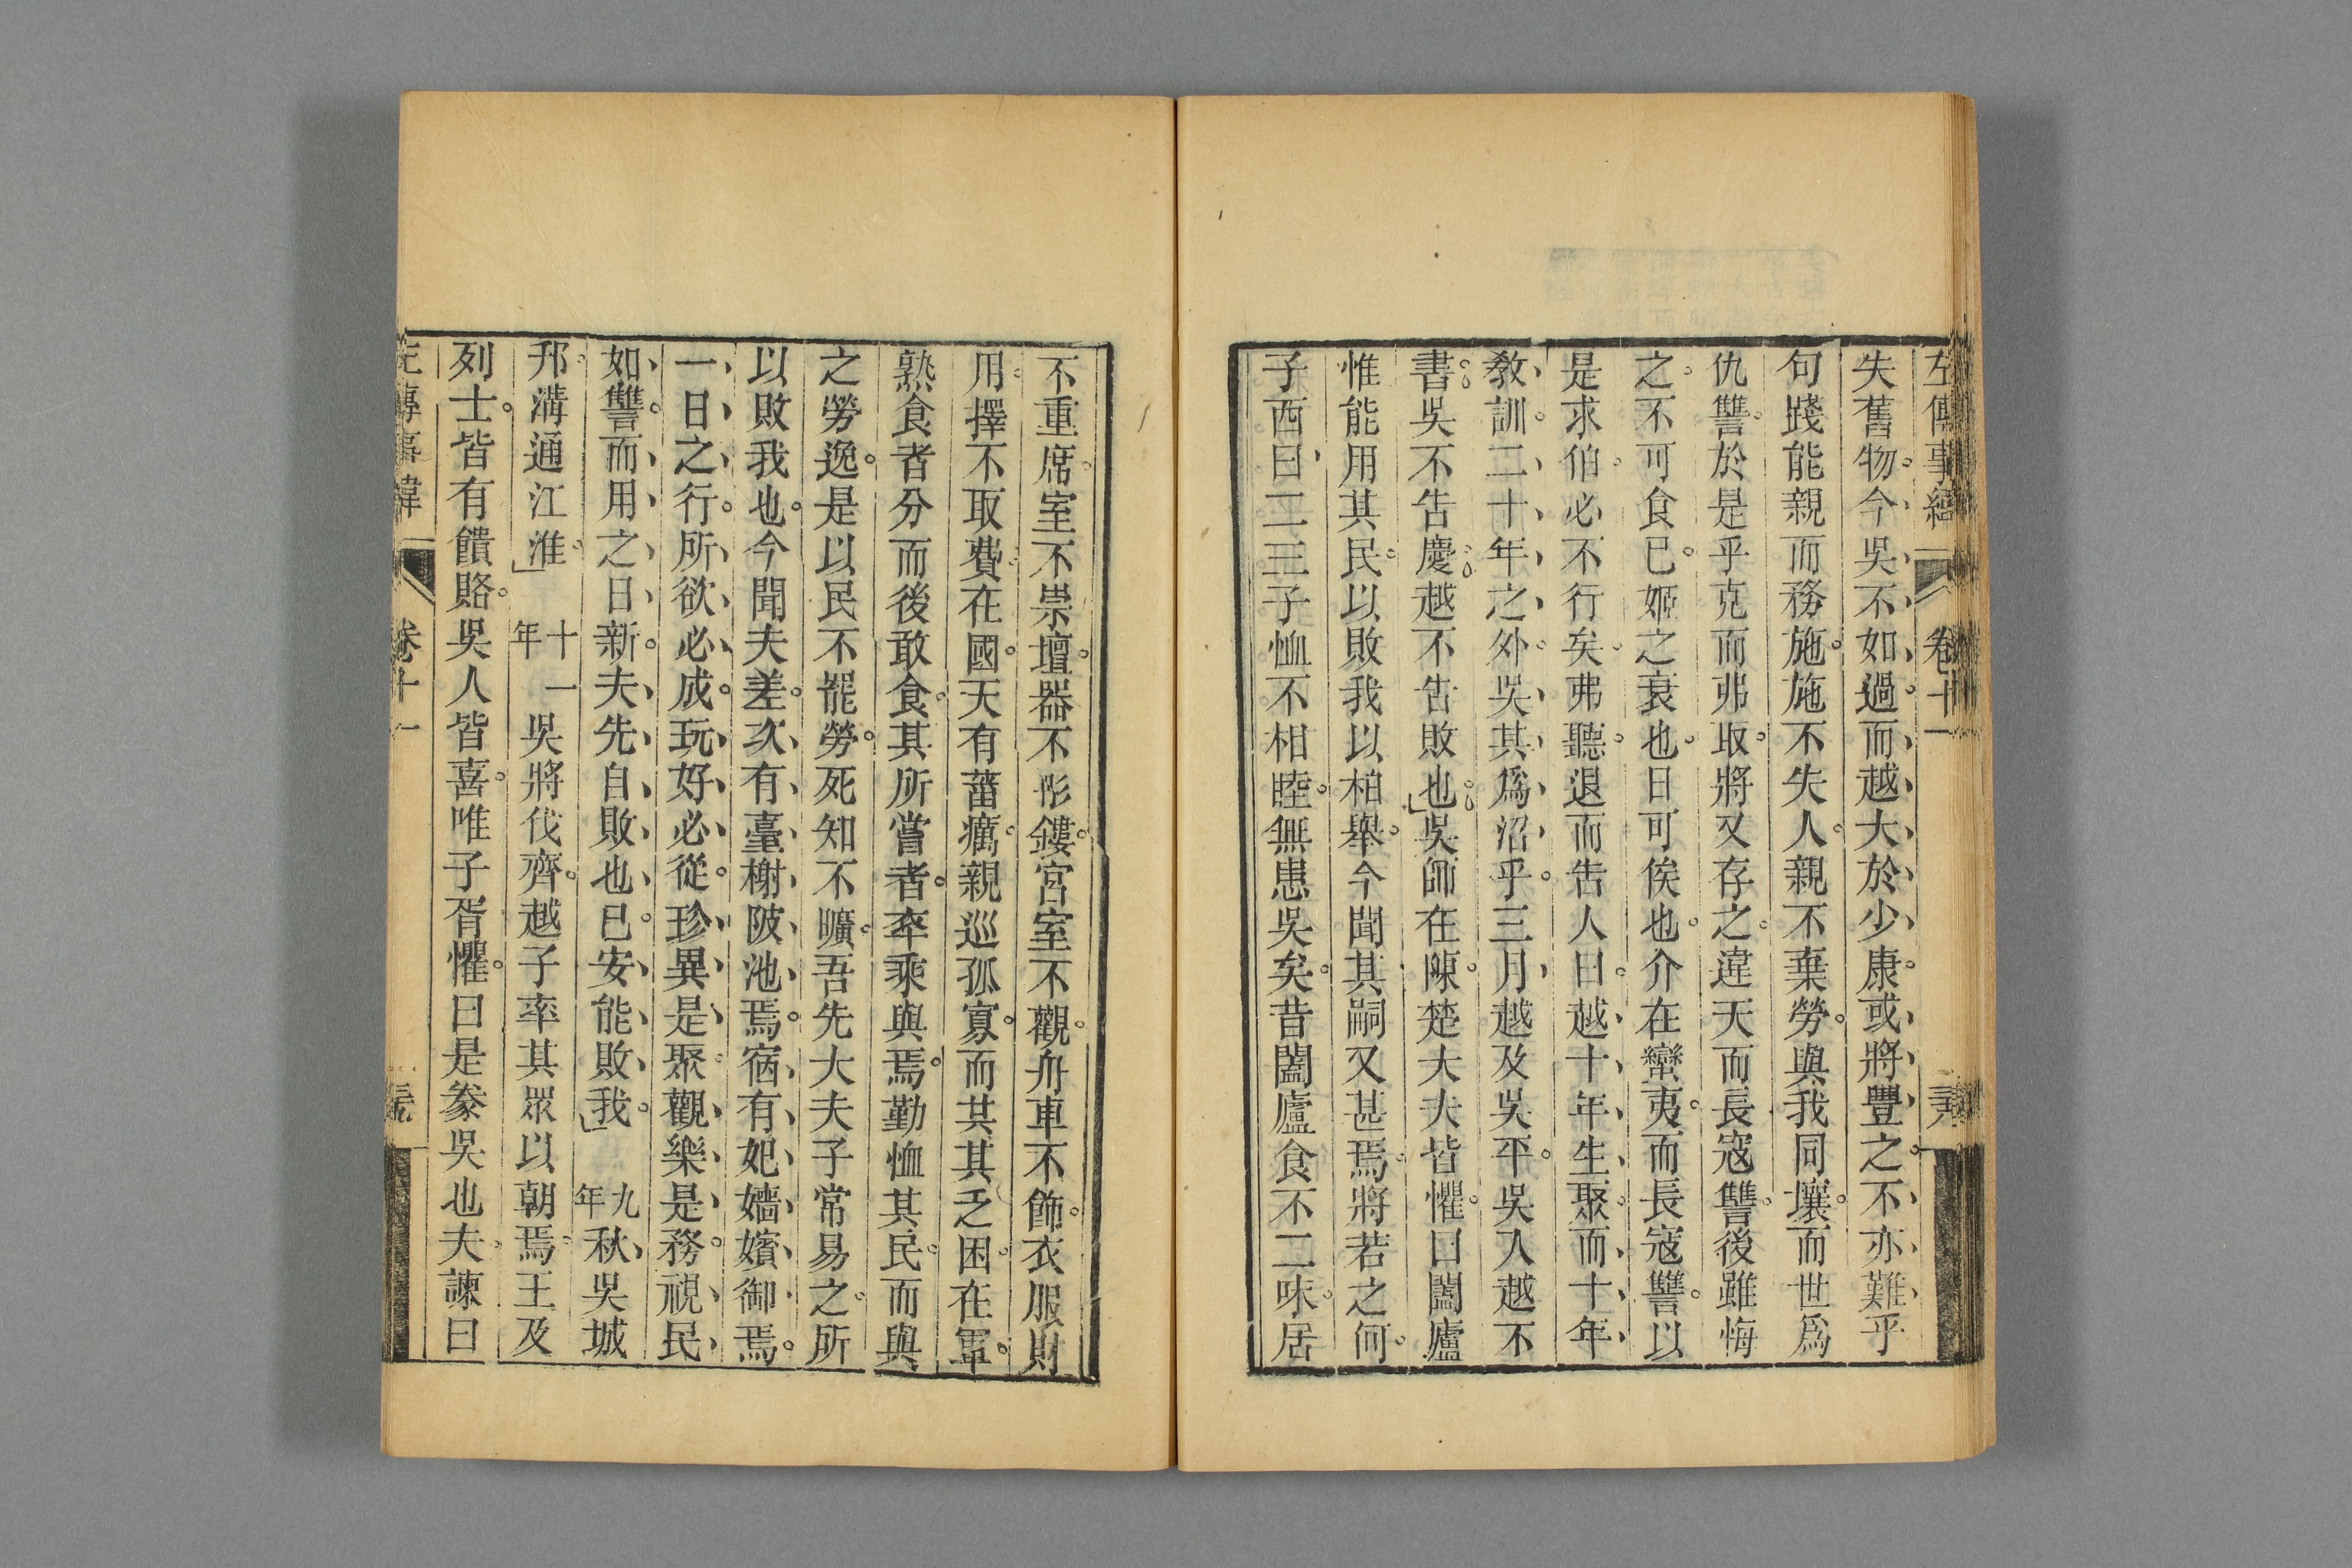 左傳事緯 卷十一
失舊物今吳不如過而越大於少康或將豐之不亦難乎
句踐能親而務施施不失人親不棄勞與我同壤而世爲
仇讐於是乎克而弗取將又存之違天而長寇讐後雖悔
之不可食已姬之衰也日可俟也介在蠻夷而長寇讐以
是求伯必不行矣弗聽退而告人曰越十年生聚而十年
教訓二十年之外吳其爲沼乎三月越及吳平吳入越不
書吳不告慶越不告敗也吳師在陳楚大夫皆懼曰闔廬
惟能用其民以敗我以柏舉今聞其嗣又甚焉將若之何
子西曰二三子恤不相睦無患吳矣昔闔廬食不二味居
不重席室不崇壇器不彤鏤宮室不觀舟車不飾衣服財
用擇不取費在國天有菑癘親巡孤寡而共其乏困在軍
熟食者分而後敢食其所嘗者卒乘與焉勤恤其民而與
之勞逸是以民不罷勞死知不曠吾先大夫子常易之所
以敗我也今聞夫差次有臺榭陂池焉宿有妃嬙嬪御焉
一日之行所欲必成玩好必從珍異是聚觀樂是務視民
如讐而用之日新夫先自敗也已安能敗我 九年 秋吳城
邗溝通江淮 十一年 吳將伐齊越子率其眾以朝焉王及
列士皆有饋賂吳人皆喜唯子胥懼曰是豢吳也夫諫曰
左傳事緯 卷十一